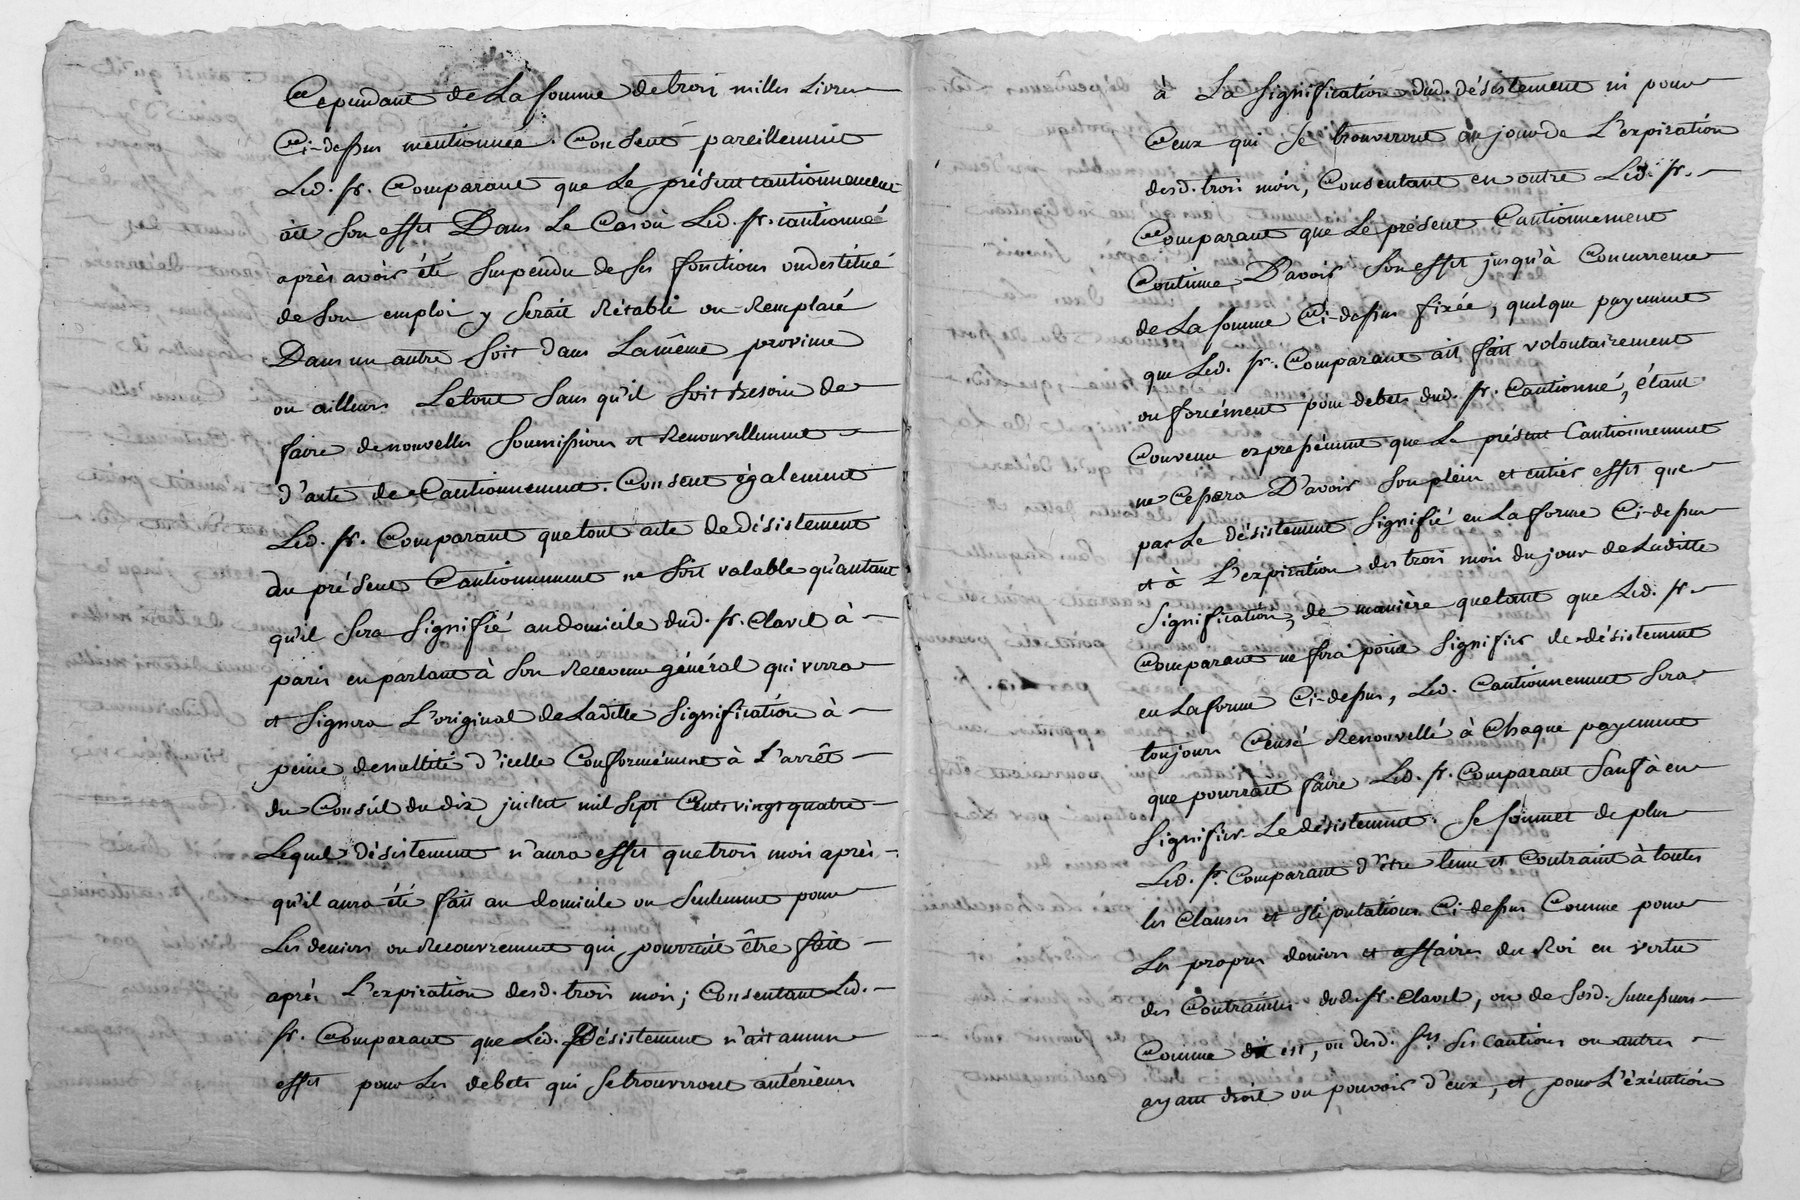 Cependant de La somme de trois milles Livres
Ci-dessus mentionnée. Consent pareillement
Led. Sr. Comparant que Le présent cautionnement
ait Son effet Dans Le Cas où Led. Sr. cautionné
après avoir été Suspendu de Ses fonctions ou destitué
de Son emploi y Serait Rétabli ou Remplacé
Dans un autre Soit dans La même province
ou ailleurs Le tout Sans qu'il Soit besoin de
faire de nouvelles Soumissions et Renouvellement
d'acte de Cautionnement. Consent également
Led. Sr. Comparant que tout acte de désistement
du présent Cautionnement ne Soit valable qu'autant
qu'il Sera Signifié au domicile dud. Sr. Clavel à
paris en parlant à Son Receveur général qui verra
et Signera L'original de Ladite Signification à
peine de nullité d'icelle Conformément à L'arrêt
du Conseil du dix juillet mil Sept Cents vingt quatre
Lequel désistement n'aura effet que trois mois après
qu'il aura été fait au domicile ou Seulement pour
Les deniers ou Recouvrement qui pourrait être fait
après L'expiration desd. trois mois; Consentant Led.
Sr. Comparant que Led. Désistement n'ait aucun
effet pour Les debets qui Se trouveront antérieurs
à La Signification dud. désistement ni pour
Ceux qui Se trouveront au jour de L'expiration
desd. trois mois, Consentant en outre Led. Sr.
Comparant que Le présent Cautionnement
Continue D'avoir Son effet jusqu'à Concurrence
de La somme Ci-dessus fixée, quelque payement
que Led. Sr. Comparant ait fait volontairement
ou forcément pour debets dud. Sr. Cautionné, étant
Convenu expressément que Le présent Cautionnement
ne Cessera D'avoir Son plein et entier effet que
par Le désistement Signifié en La forme Ci-dessus
et à L'expiration des trois mois du jour de Laditte
Signification, de manière que tant que Led. Sr.
Comparant ne fera point Signifier de désistement
en La forme Ci-dessus, Led. Cautionnement Sera
toujours Censé Renouvellé à Chaque payement
que pourrait faire Led. Sr. Comparant Sauf à en
Signifier Le désistement. Se Soumet de plus
Led. Sr. Comparant d'être tenu et Contraint à toutes
les Clauses et Stipulations Ci-dessus Comme pour
Les propres deniers et affaires du Roi en vertu
des Contraintes dud. Sr. Clavel, ou de Sesd. Successeurs
Comme dit est, ou desd. Srs. Ses Cautions ou autres
ayant droit ou pouvoir d'eux, et pour L'éxécution